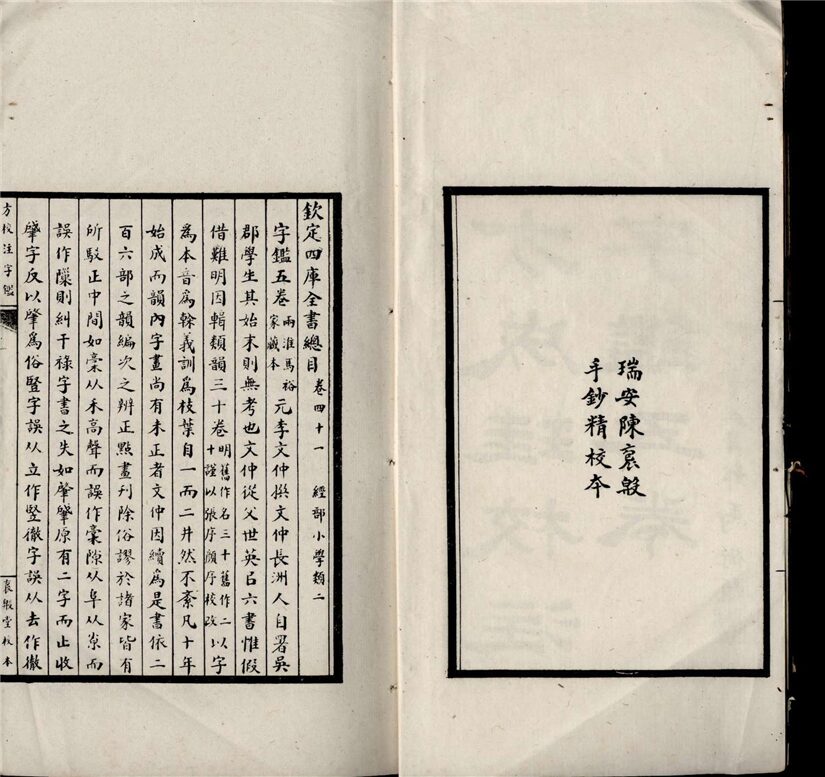 瑞安陳襃殷
手鈔精校本
欽定四庫全書總目 卷四十一 經部小學類二
字鑑五卷 兩淮馬裕家藏本 元李文仲撰文仲長洲人自署吳
郡學生其始末則無考也文仲從父世英以六書惟假
借難明因輯類韻三十卷 明舊作名三十舊作二十謹以張序顏序校改 以字
為本音爲榦義訓爲枝葉自一而二井然不紊凡十年
始成而韻內字畫尚有未正者文仲因續爲是書依二
百六部之韻編次之辨正點畫刊除俗謬於諸家皆有
所駁正中間如稾从禾高聲而誤作稾隙从阜从𡭴而
誤作隟則糾干祿字書之失如肈肇原有二字而止收
肇字反以肈爲俗豎字誤从立作竪徹字誤从去作徹
方校注字鑑
襃殷堂校本